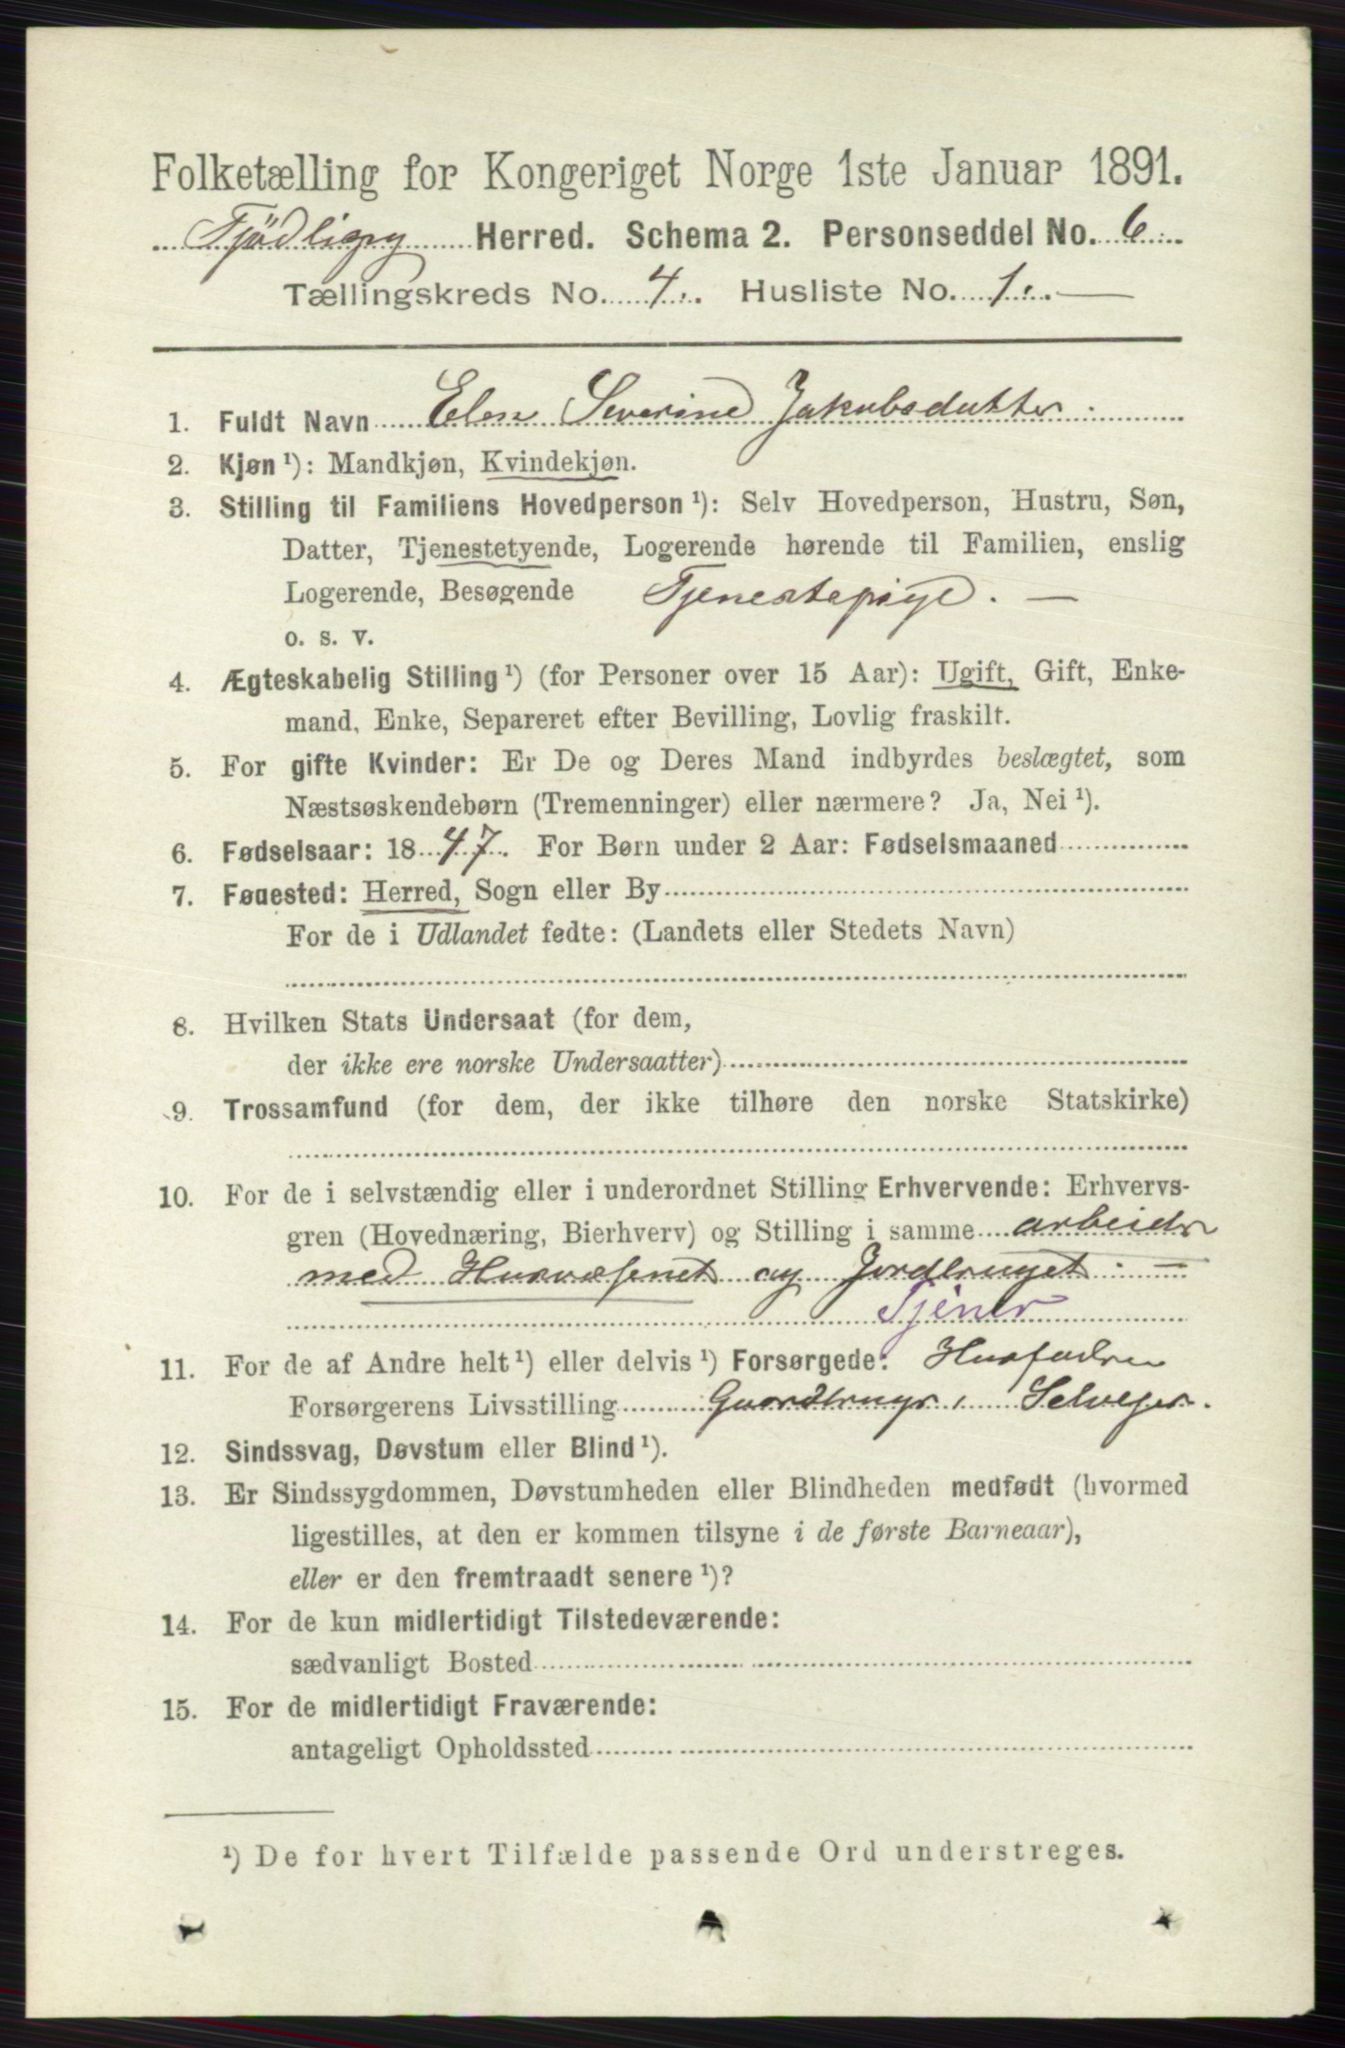 Folketælling for Kongeriget Norge 1ste Januar 1891.
Fjödligry Herred. Schema 2. Personseddel No. 6
Tællingskreds No. 4. Husliste No. 1.
1. Fuldt Navn Elen Severine Jakobsdatter
2. Kjøn ¹): Mandkjøn, Kvindekjøn.
3. Stilling til Familiens Hovedperson ¹): Selv Hovedperson, Hustru, Søn,
Datter, Tjenestetyende, Logerende hørende til Familien, enslig
Logerende, Besøgende Tjenestepige.
o. s. v.
4. Ægteskabelig Stilling ¹) (for Personer over 15 Aar): Ugift, Gift, Enke-
mand, Enke, Separeret efter Bevilling, Lovlig fraskilt.
5. For gifte Kvinder: Er De og Deres Mand indbyrdes beslægtet, som
Næstsøskendebørn (Tremenninger) eller nærmere? Ja, Nei ¹).
6. Fødselsaar: 1847. For Børn under 2 Aar: Fødselsmaaned
7. Fødested: Herred, Sogn eller By
For de i Udlandet fødte: (Landets eller Stedets Navn)
8. Hvilken Stats Undersaat (for dem,
der ikke ere norske Undersaatter)
9. Trossamfund (for dem, der ikke tilhøre den norske Statskirke)
10. For de i selvstændig eller i underordnet Stilling Erhvervende: Erhvervs-
gren (Hovednæring, Bierhverv) og Stilling i samme arbeider
med Husvæsenet og Jordbruget
Tjener
11. For de af Andre helt ¹) eller delvis ¹) Forsørgede: Husfaderen
Forsørgerens Livsstilling Gaardbruger, Selveger.
12. Sindssvag, Døvstum eller Blind ¹).
13. Er Sindssygdommen, Døvstumheden eller Blindheden medfødt (hvormed
ligestilles, at den er kommen tilsyne i de første Barneaar),
eller er den fremtraadt senere ¹)?
14. For de kun midlertidigt Tilstedeværende:
sædvanligt Bosted
15. For de midlertidigt Fraværende:
antageligt Opholdssted
¹) De for hvert Tilfælde passende Ord understreges.